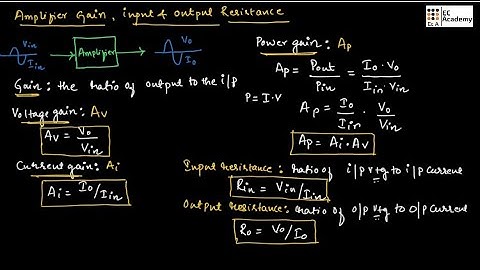 Amplifier Gain, input & output Resistance
EC
Academy
EC A
Vin
Iin
Amplifier
Vo
Io
Gain: the ratio of output to the i/p
Voltage gain: Av
Av = Vo/Vin
Current gain: Ai
Ai = Io/Iin
Power gain: Ap
Ap = Pout/Pin = Io · Vo/Iin · Vin
P = I · V
Ap = Io/Iin · Vo/Vin
Ap = Ai · Av
Input resistance: ratio of i/p vtg to i/p current
Rin = Vin/Iin
Output resistance: ratio of o/p vtg to o/p current
Ro = Vo/Io